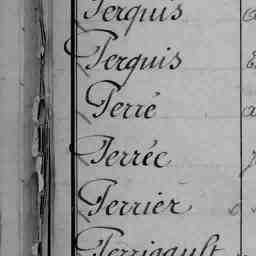 Terquis
Terquis
Terré
Terrée
Terrier
Terrigault